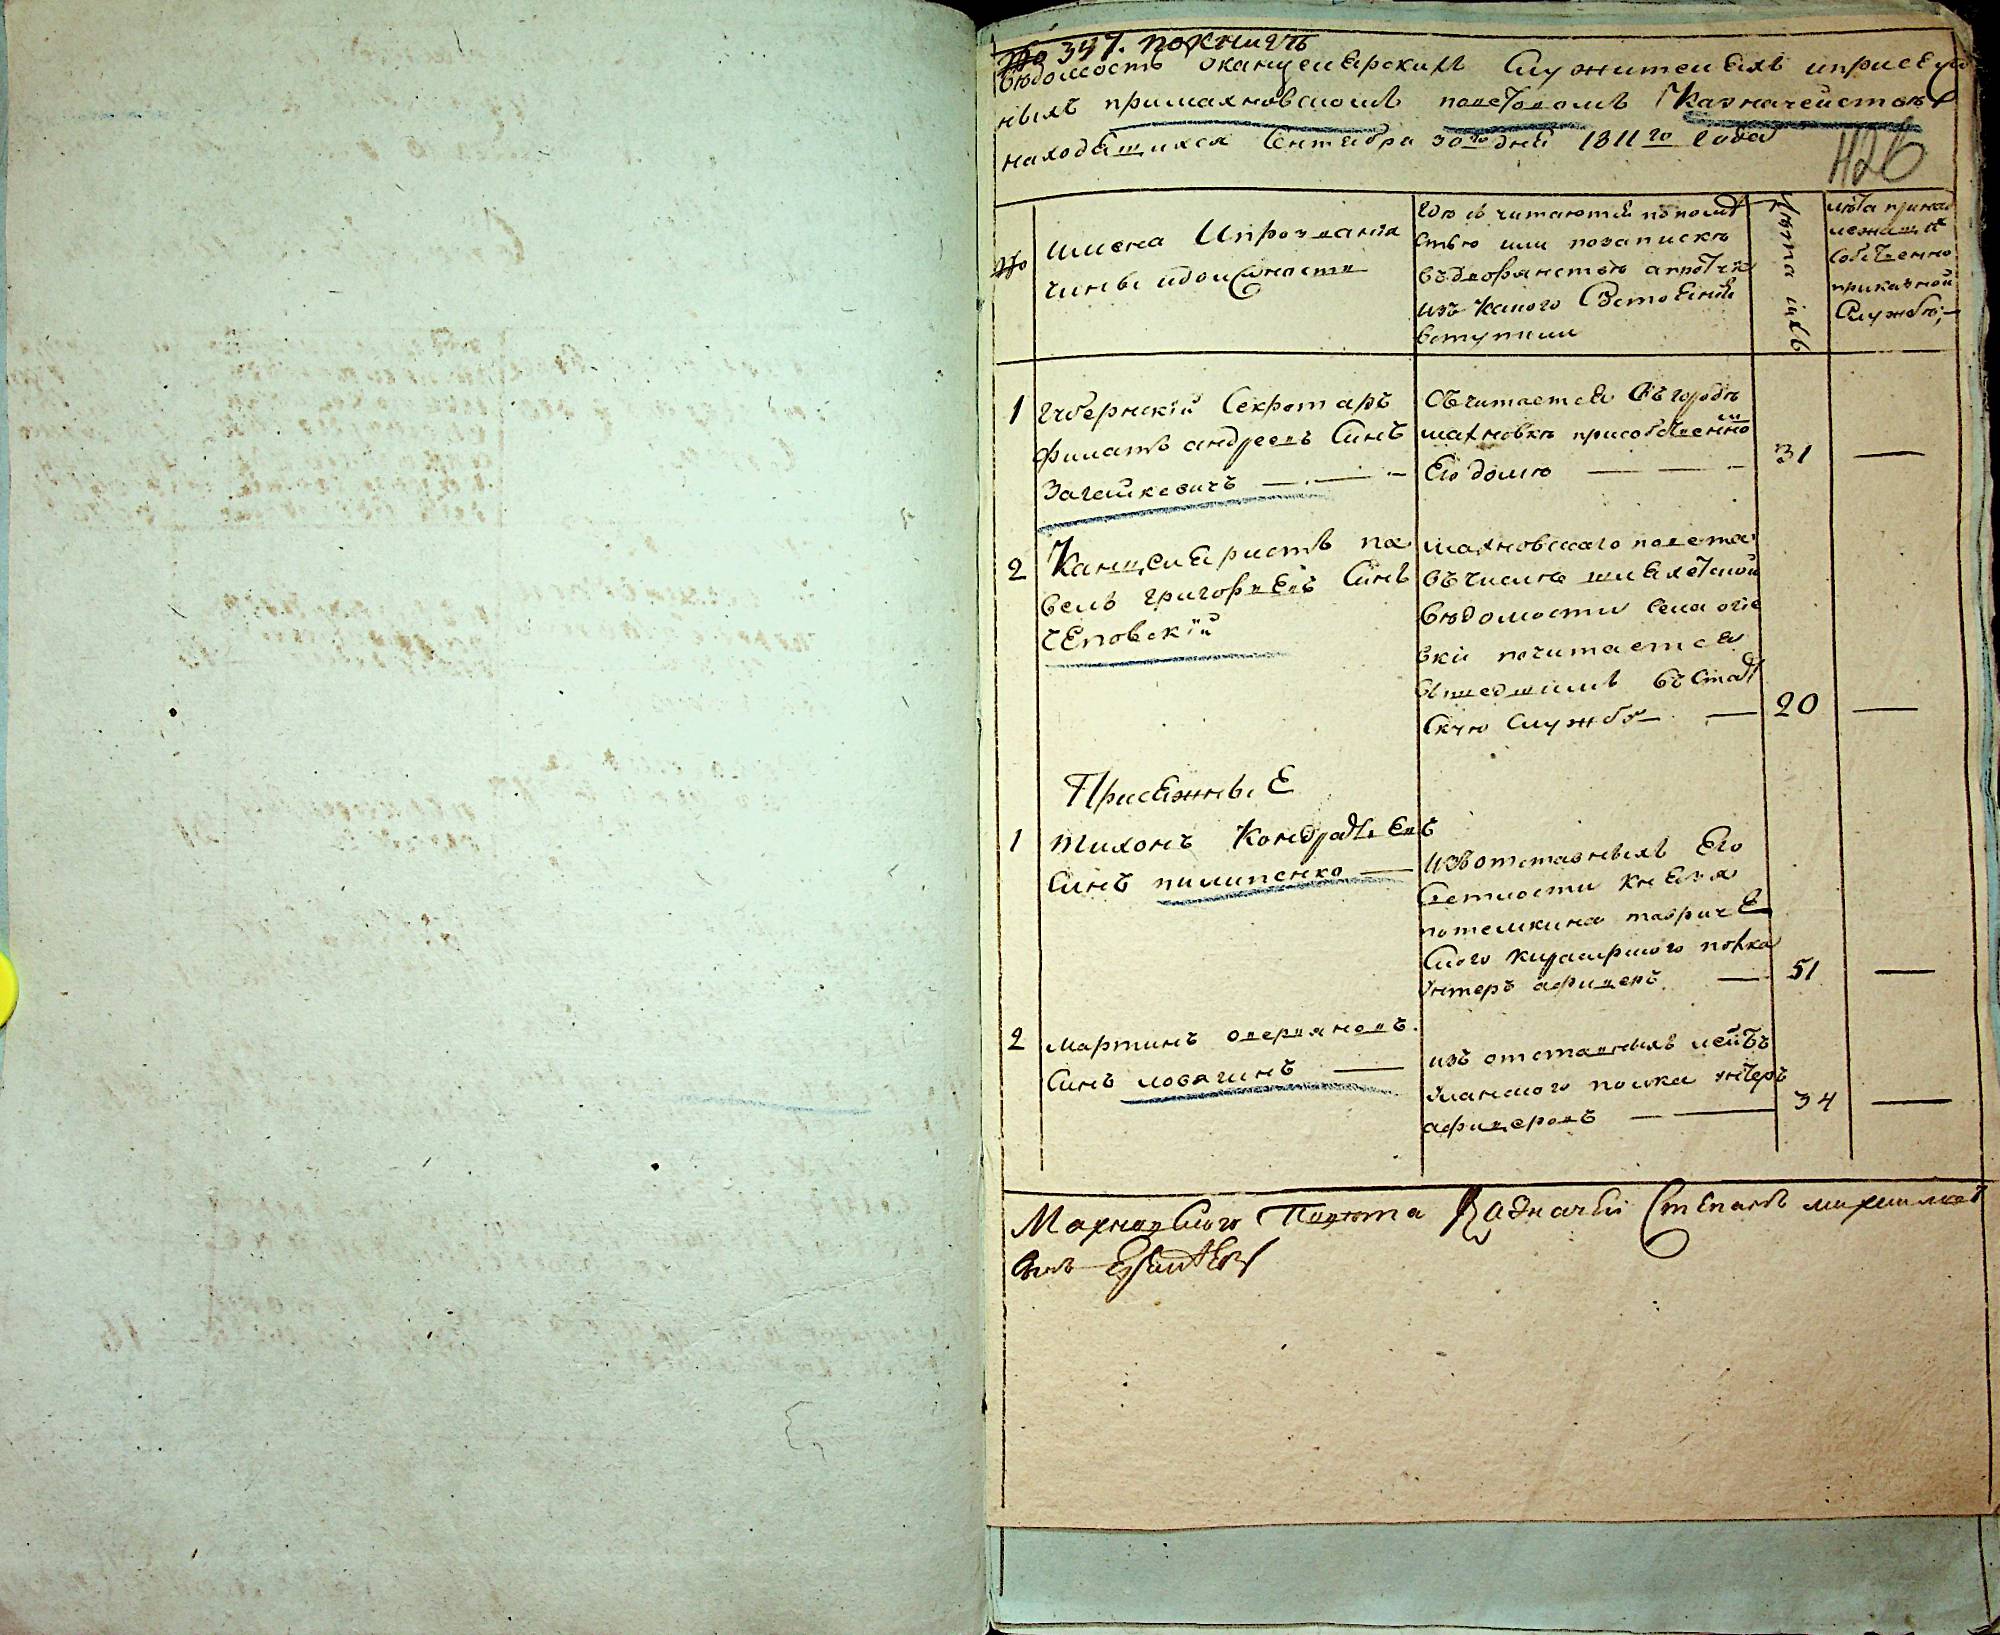 № 347. покнигъ
Вѣдомость оканцелярскихъ Служителяхъ иприсяж
ныхъ примахновскомъ поветовомъ Казначействѣ
находящихся Сентября 30го дня 1811го года
426
№
имена Ипрозвания
чины идолжности
гдѣ считаются
стью или позапискѣ
въдворянство
изъ какого Состояния
вступили
Лѣта ихъ
лѣта принад
лежащия
собственно
приказной
Службѣ
1
Губернский Секретарь
Филатъ андреевъ Синъ
Загайкевичъ
Считается въгородѣ
махновкѣ присобственно
Его домѣ
31
2
Канцеляристъ па
велъ григорьевъ Синъ
чеповский
махновского повета
въчислѣ шляхетской
вѣдомости села
вки почитается
вшедшимъ въстат
скую Службу
20
Присяжные
1
тихонъ Кондратьевъ
Синъ пилипенко
изъотставныхъ Его
Светлости князя
потемкина тавриче
ского кирасирского полка
унтеръ афицеръ
51
2
мартинъ оверяновъ
Синъ ловягинъ
изъ отставныхъ лейбъ
уланского полка унтеръ
афицеровъ
34
Махновского Повѣта Казначей Степанъ михайловъ
Синъ